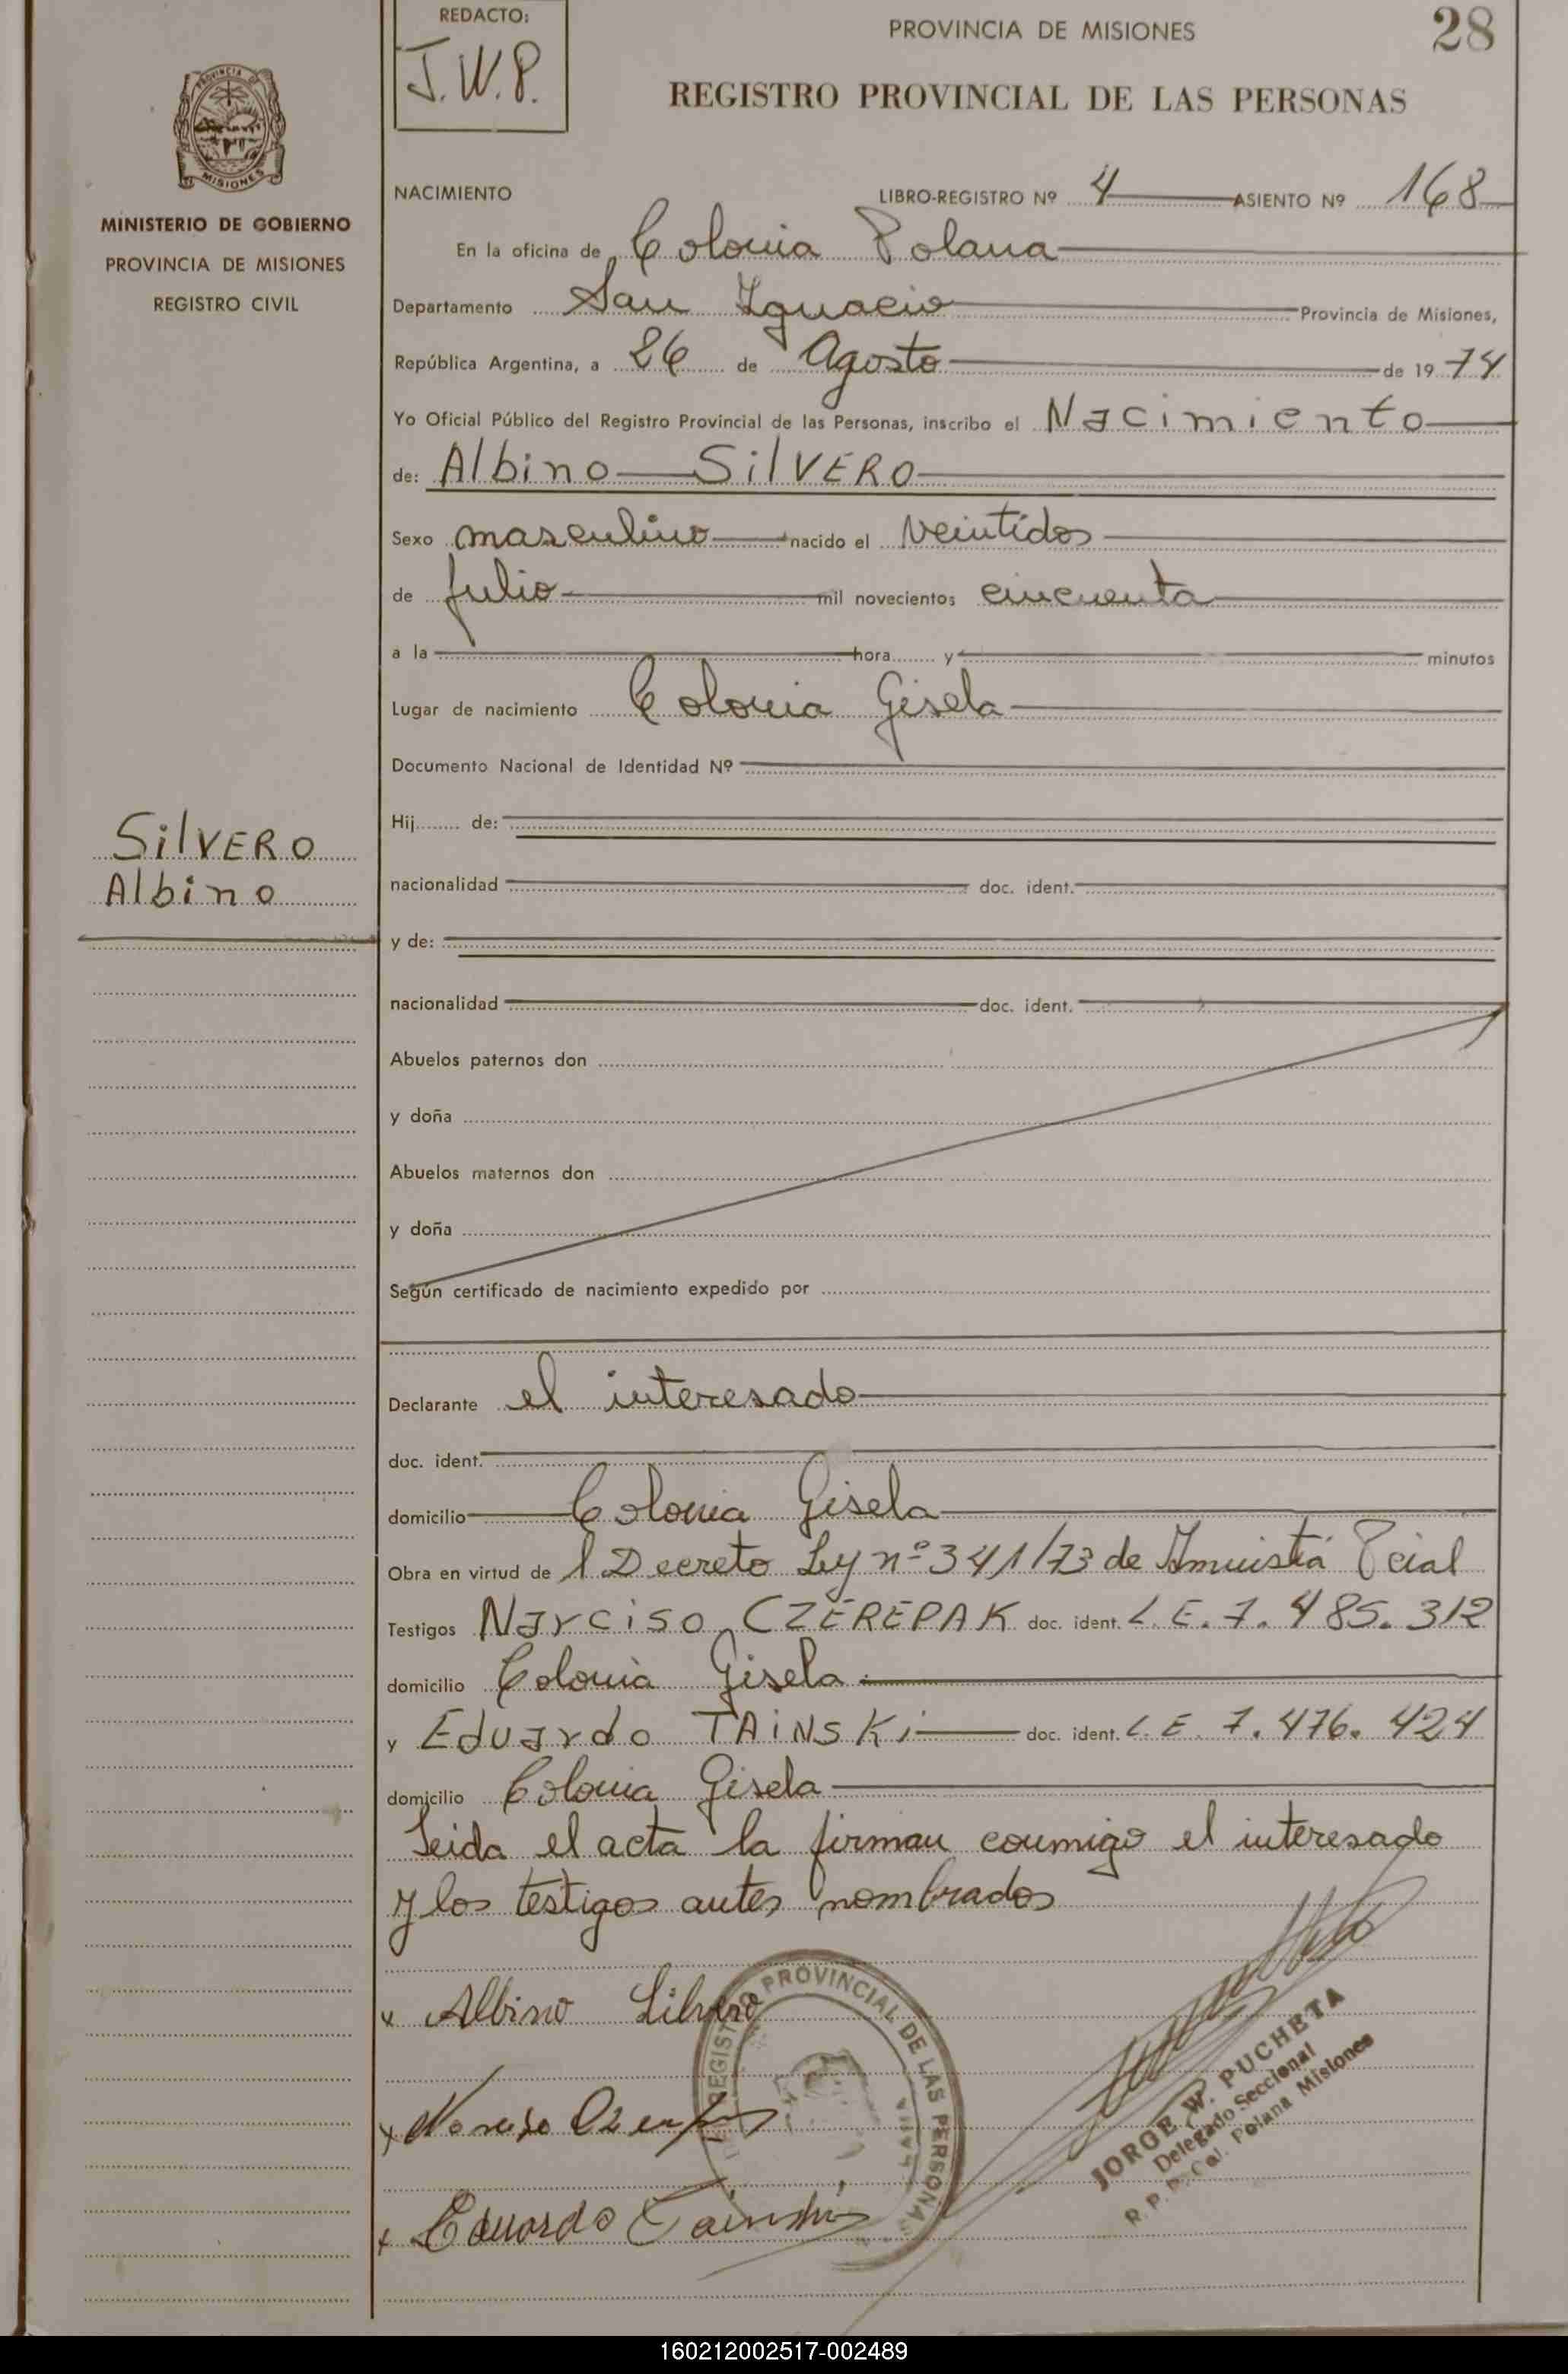 REDACTO:
J.W.P.
PROVINCIA DE MISIONES
28
REGISTRO PROVINCIAL DE LAS PERSONAS
MISIONES
MINISTERIO DE GOBIERNO
PROVINCIA DE MISIONES
REGISTRO CIVIL
NACIMIENTO LIBRO-REGISTRO Nº 4 ASIENTO Nº 168
En la oficina de Colonia Polana
Departamento San Ignacio Provincia de Misiones,
República Argentina, a 26 de Agosto de 1974
Yo Oficial Público del Registro Provincial de las Personas, inscribo el Nacimiento
de: Albino SilVERO
Sexo masculino nacido el Veintidos
de Julio mil novecientos cincuenta
a la hora y minutos
Lugar de nacimiento Colonia Gisela
Documento Nacional de Identidad Nº
Hij de:
SilVERO
Albino
nacionalidad doc. ident.
y de:
nacionalidad doc. ident.
Abuelos paternos don
y doña
Abuelos maternos don
y doña
Según certificado de nacimiento expedido por
Declarante el interesado
doc. ident.
domicilio Colonia Gisela
Obra en virtud de l Decreto Ley nº 341/73 de Amnistia Pcial
Testigos Narciso CZEREPAK doc. ident. L.E. 7.485.312
domicilio Colonia Gisela
y Eduardo TAiNSKi doc. ident. L.E. 7.476.424
domicilio Colonia Gisela
Leida el acta la firman conmigo el interesado
y los testigos antes nombrados
x Albino Silvero
REGISTRO PROVINCIAL DE LAS PERSONAS
x
x Eduardo Tainski
JORGE W. PUCHETA
Delegado Seccional
R. P. P. Col. Polana Misiones
160212002517-002489